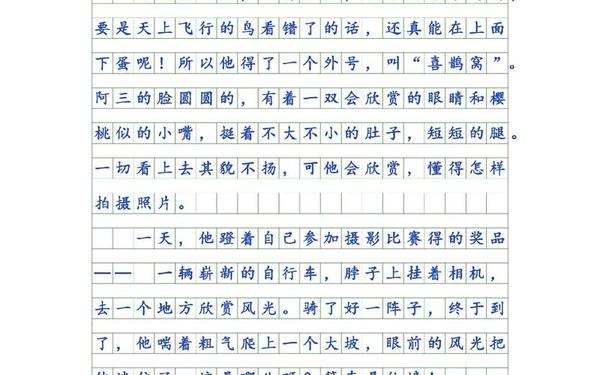 要是天上飞行的鸟看错了的话，还真能在上面
下蛋呢！所以他得了一个外号，叫“喜鹊窝”。
阿三的脸圆圆的，有着一双会欣赏的眼睛和樱
桃似的小嘴，挺着不大不小的肚子，短短的腿。
一切看上去其貌不扬，可他会欣赏，懂得怎样
拍摄照片。
一天，他蹬着自己参加摄影比赛得的奖品
—— 一辆崭新的自行车，脖子上挂着相机，
去一个地方欣赏风光。骑了好一阵子，终于到
了，他喘着粗气爬上一个大坡，眼前的风光把